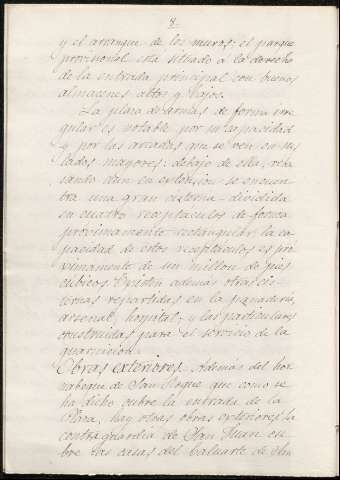 8.
y el arranque de los muros; el parque
provisional está situado á la derecha
de la entrada principal con buenos
almacenes altos y bajos.
La plaza de armas de forma irre
gular es notable por su capacidad
y por las arcadas que se ven en sus
lados mayores: debajo de ella, reba
sando aun en extension se encuen
tra una gran cisterna dividida
en cuatro receptáculos de forma
proximamente rectangular, la ca
pacidad de estos receptáculos es pro
ximamente de un millon de pies
cúbicos. Existen ademas otras cis
ternas repartidas en la panaderia,
arsenal, hospital y las particulares
construidas para el servicio de la
guarnicion.
Obras exteriores. Ademas del hor
nabeque de San Roque que como se
ha dicho cubre la entrada de la
Plaza, hay otras obras exteriores la
contraguardia de San Juan cu
bre las casas del baluarte de